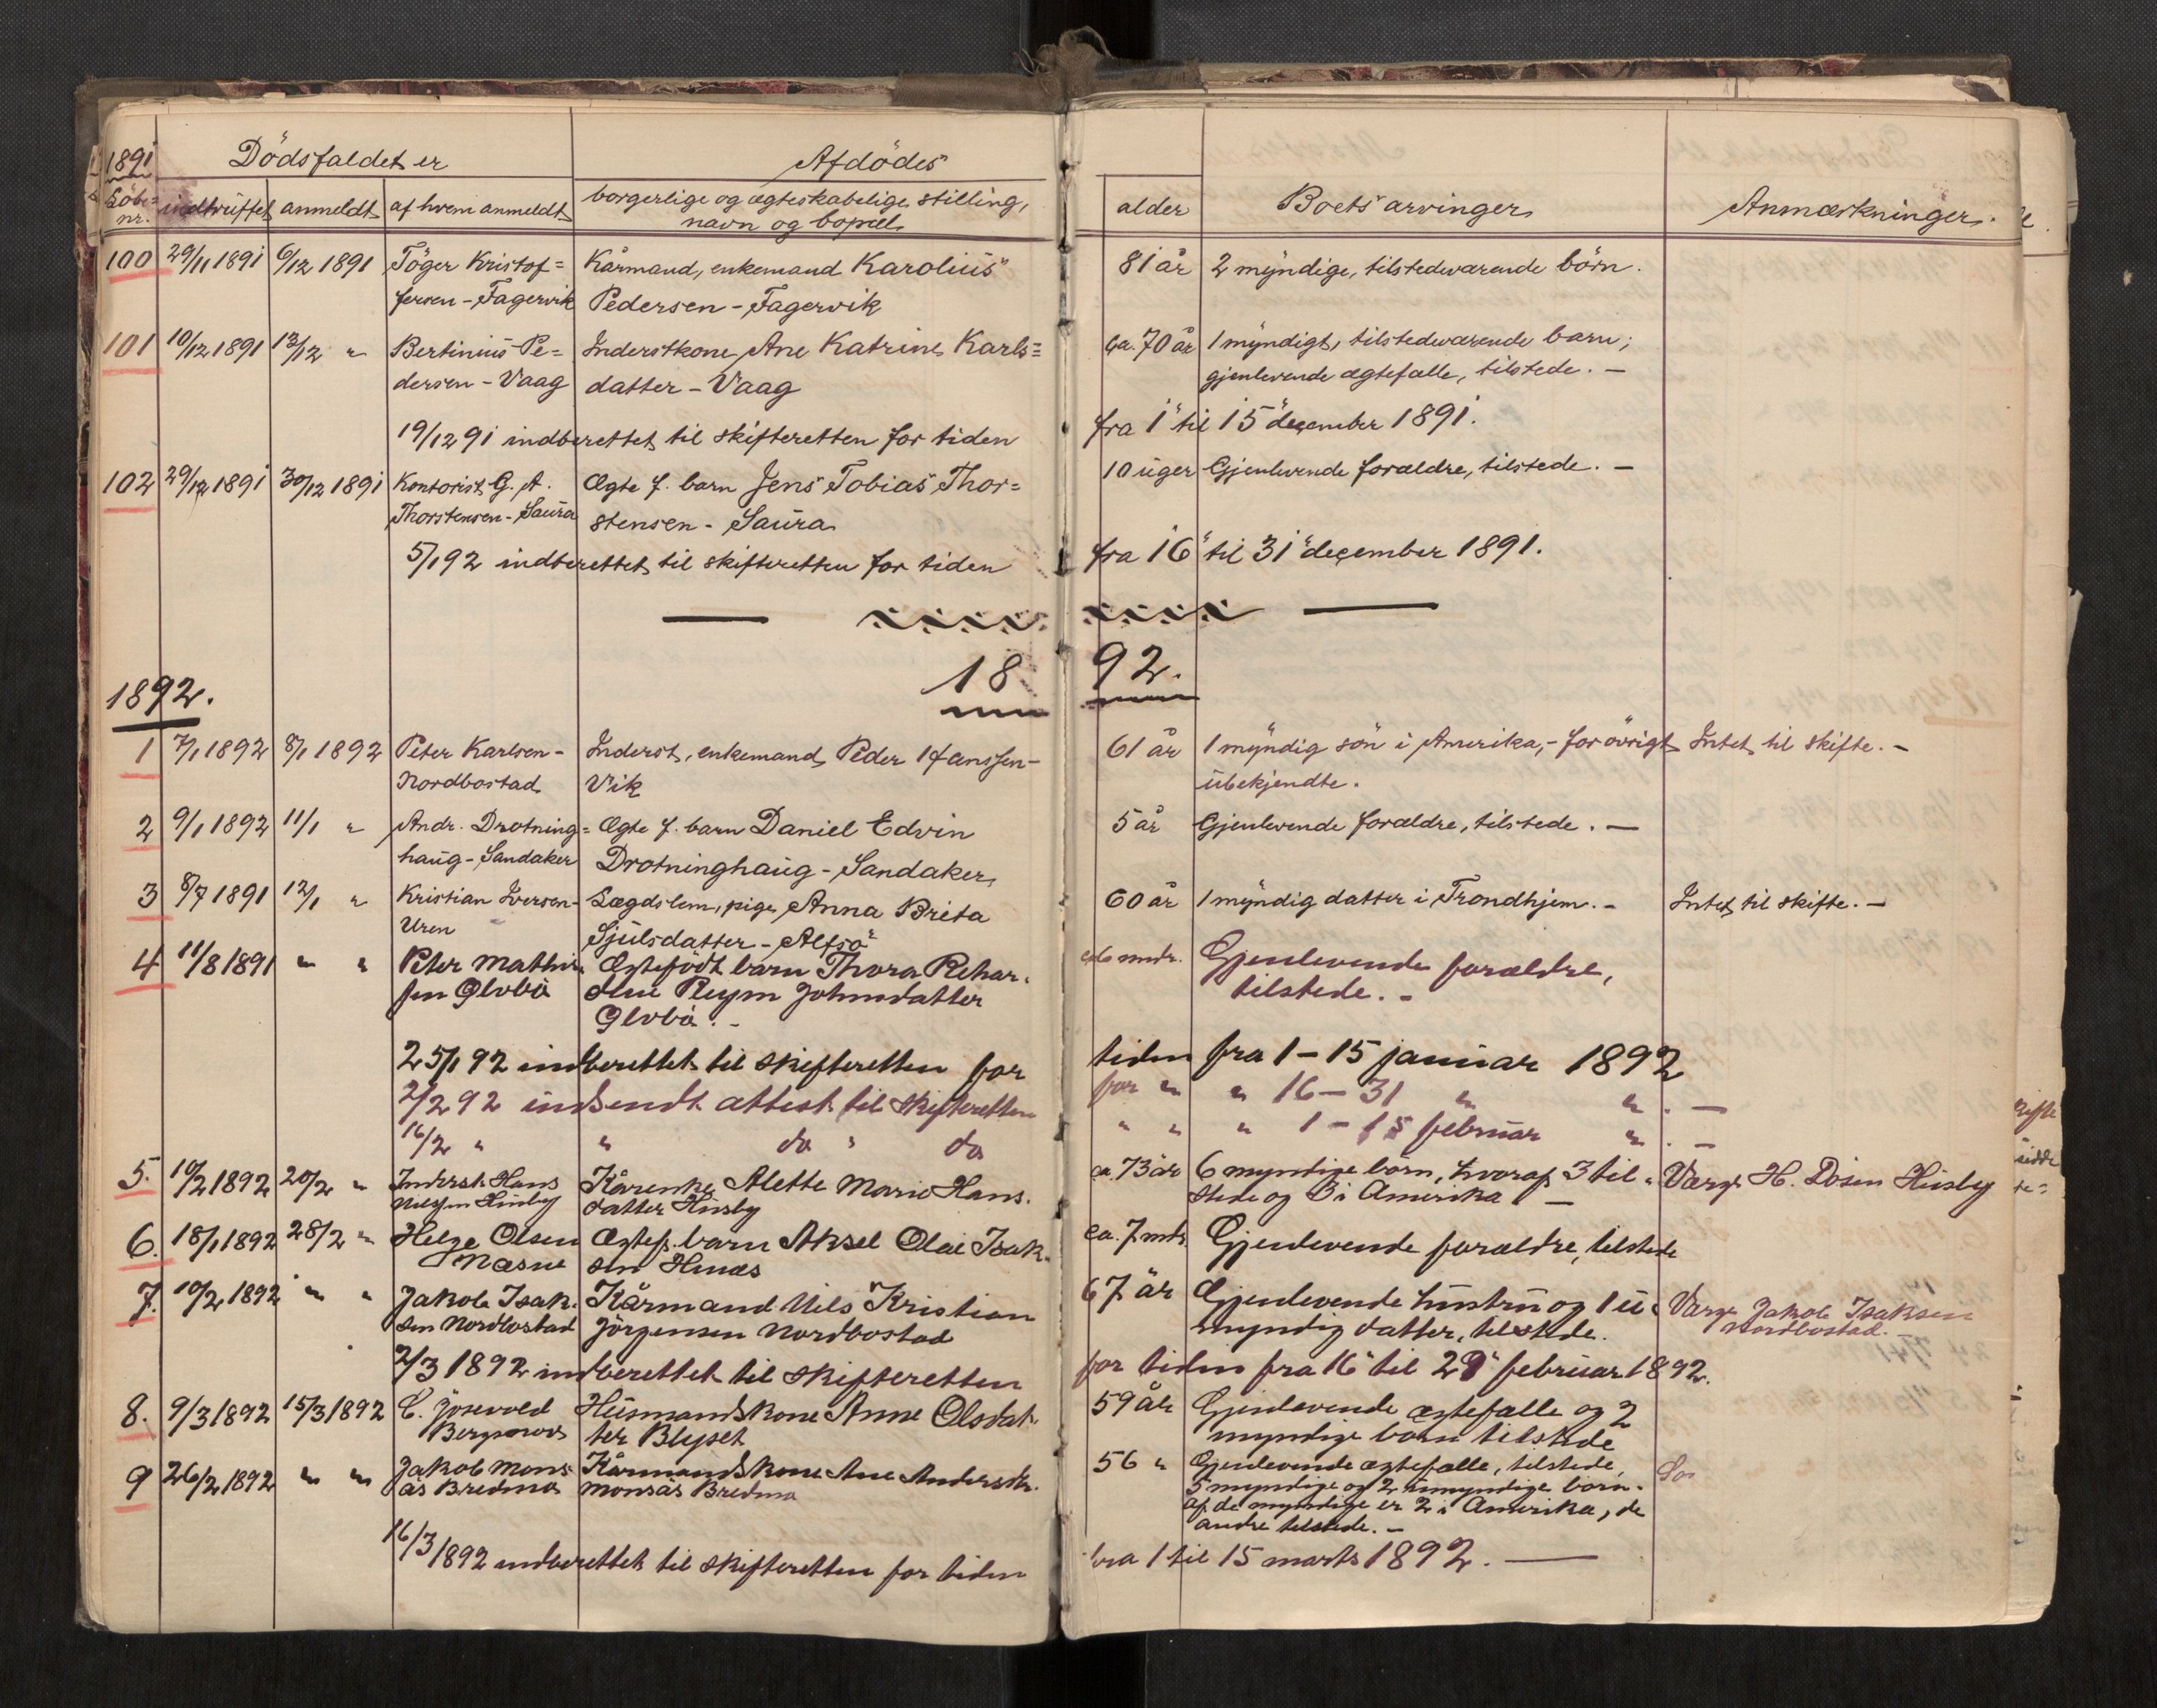 1891 Dödsfaldet er Afdödes
Löbe= indtruffet anmeldt af hvem anmeldt borgerlige og ægteskabelige stilling, alder Boets arvinger Anmærkninger.
nr. navn og bopæl
100 29/11 1891 6/12 1891 Töger Kristof= Kårmand, enkemand Karolius 81 år 2 myndige, tilstedeværende börn.
fersen - Fagervik Pedersen - Fagervik
101 10/12 1891 12/12 " Bertinius Pe= Inderstkone Ane Katrine Karls= ca. 70 år 1 myndigt, tilstedeværende barn;
dersen - Vaag datter - Vaag gjenlevende ægtefælle, tilstede. —
19/12 91 indberettet til skifteretten for tiden fra 1 til 15 december 1891.
102 29/12 1891 30/12 1891 Kontorist G. A. Ægte f. barn Jens Tobias Thor= 10 uger Gjenlevende forældre, tilstede. —
Thorstensen - Saura stensen - Saura
5/1 92 indberettet til skifteretten for tiden fra 16 til 31 december 1891.
18 92.
1892.
1 7/1 1892 8/1 1892 Peter Karlsen - Inderst, enkemand Peder Hanssen - 61 år 1 myndig sön i Amerika, - forövrigt Intet til skifte. —
Nordbostad Vik ubekjendte.
2 9/1 1892 11/1 " Andr. Drotning= Ægte f. barn Daniel Edvin 5 år Gjenlevende forældre, tilstede. —
haug - Sandaker Drotninghaug - Sandaker
3 8/7 1891 12/1 " Kristian Iversen - Lægdslem, pige Anna Brita 60 år 1 myndig datter i Trondhjem. - Intet til skifte. —
Uren Sjulsdatter - Alfsö
4 11/8 1891 " " Peter Mathi Ægtefödt barn Thora Rehar. 6 mndr. Gjenlevende forældre,
sen Globö dine Johnsdatter tilstede. -
Globö. -
25/1 92 indberettet til skifteretten for tiden fra 1 - 15 januar 1892
2/2 92 indsendt attest til skifteretten for " " 16 - 31 " " . —
16/2 " " do " do " " " 1 - 15 februar " . —
5. 10/2 1892 20/2 " Inderst Hans Kårenke Alette Marie Hans. ca. 73 år 6 myndige börn, hvoraf 3 til= Værge H. Dösen Husby
Husby datter Husby stede og 3 i Amerika —
6. 18/1 1892 28/2 " Helge Olsen Ægtef. barn Aksel Olai Isak. ca. 7 mdr. Gjenlevende forældre, tilstede
Næsne sen
7. 10/2 1892 " " Jakob Isak. Kårmand Nils Kristian 67 år Gjenlevende hustru og 1 u= Værge Jakob Isaksen
sen Nordbostad Jörgensen Nordbostad myndig datter, tilstede. Nordbostad.
2/3 1892 indberettet til skifteretten for tiden fra 16 til 29 februar 1892.
8. 9/3 1892 15/3 1892 C. Jösevold Husmandskone Anne Olsdat= 59 år Gjenlevende ægtefælle og 2
ter Blyset myndige börn tilstede
9 26/2 1892 " " Jakob Mons= Kårmandskone Ane Andersdr. 56 " Gjenlevende ægtefælle, tilstede,
ås Bredmo Monsås Bredmo 5 myndige og 2 umyndige börn.
af de myndige er 2 i Amerika, de
andre tilstede. —
16/3 1892 indberettet til skifteretten for tiden fra 1 til 15 marts 1892. —